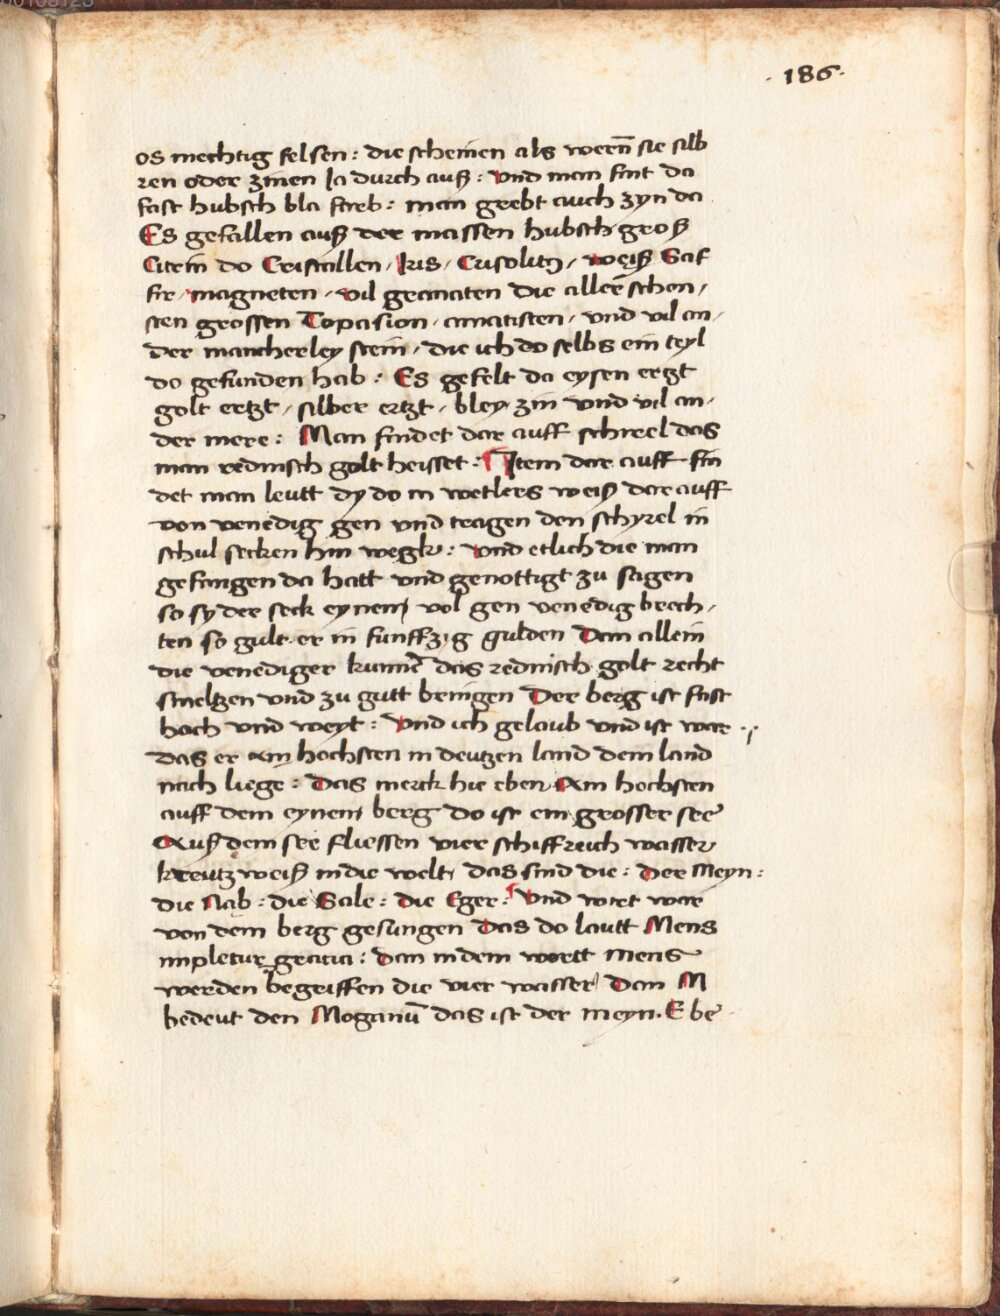 ·186·
os mechtig felsen: die scheinen als wern̄ sie silb
ren oder zinen Ia durch auß: Vnd man fint da
fast hubsch bla farb: man grebt auch zyn da
Es gefallen auß der massen hubsch groß
Citrin do Cristallen, Iris, Crisolitꝫ, weiß Saf
fir, magneten, vil granaten die aller schon,
sten grossen Topasion, amatisten, vnd vil an,
der mancherley stein, die ich do selbs ein teyl
do gefunden hab: Es gefelt da eysen ertzt
golt ertzt, silber ertzt, bley, zin vnd vil an,
der mere: Man findet dar auff schirel das
man redinsch golt heisset: Item dar auff fin
det man leutt dy do in wetlers weiß dar auff
von venedig gen vnd tragen den schyrel in
schul secken hin wegk: vnd etlich die man
gefangen da hatt vnd genottigt zu sagen
so sy der seck eynen vol gen venedig brech,
ten so gult er in funffzig gulden Dan allein
die venediger kunnē das redinisch golt recht
smeltzen vnd zu gutt bringen Der berg ist fast
hoch vnd weyt: Vnd ich gelaub vnd ist war
das er am hochsten in deutzen land dem land
nach liege: Das merck hie eben Am hochsten
auff dem eynen berg do ist ein grosser see
Auß dem see fliessen vier schiffreich wasser
kreutzweiß in die welt, das sind die: Der Meyn:
die Nab: die Sale: die Eger: Vnd wirt war
von dem berg gesungen Das do lautt Mens
impletur gracia: Dan in dem wortt mens
werden begriffen die vier wasser Dan M
bedeut den Moganū das ist der meyn. E be